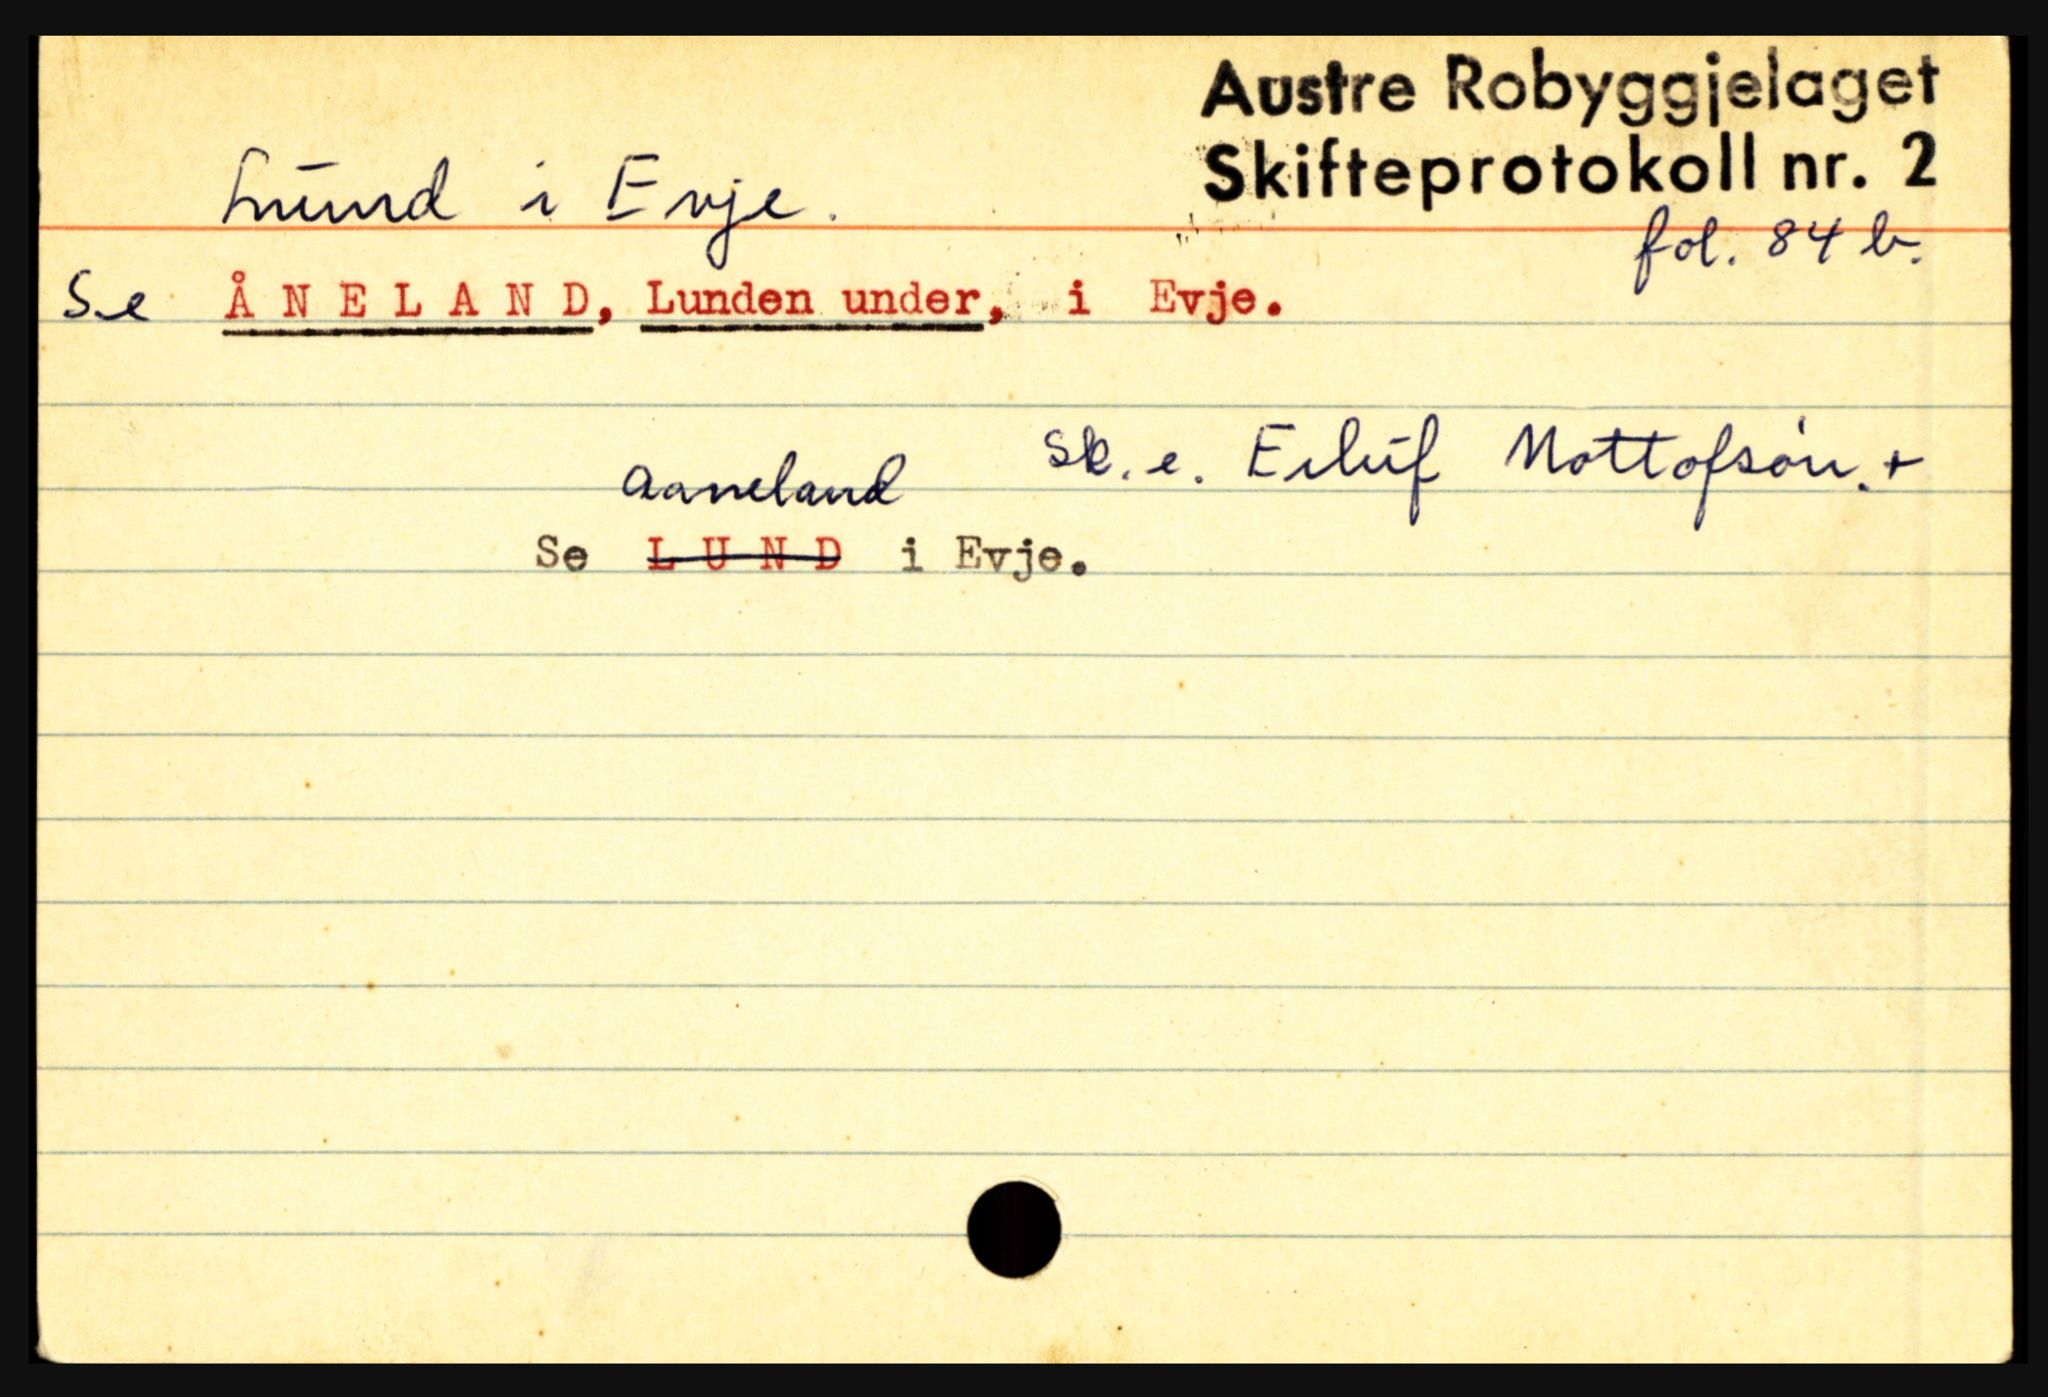 Austre Robyggjelaget
Skifteprotokoll nr. 2
Lund i Evje.
fol. 84 b.
Se ÅNELAND, Lunden under, i Evje.
Sk. e. Eiluf Nottofsøn. +
Aaneland
Se LUND i Evje.